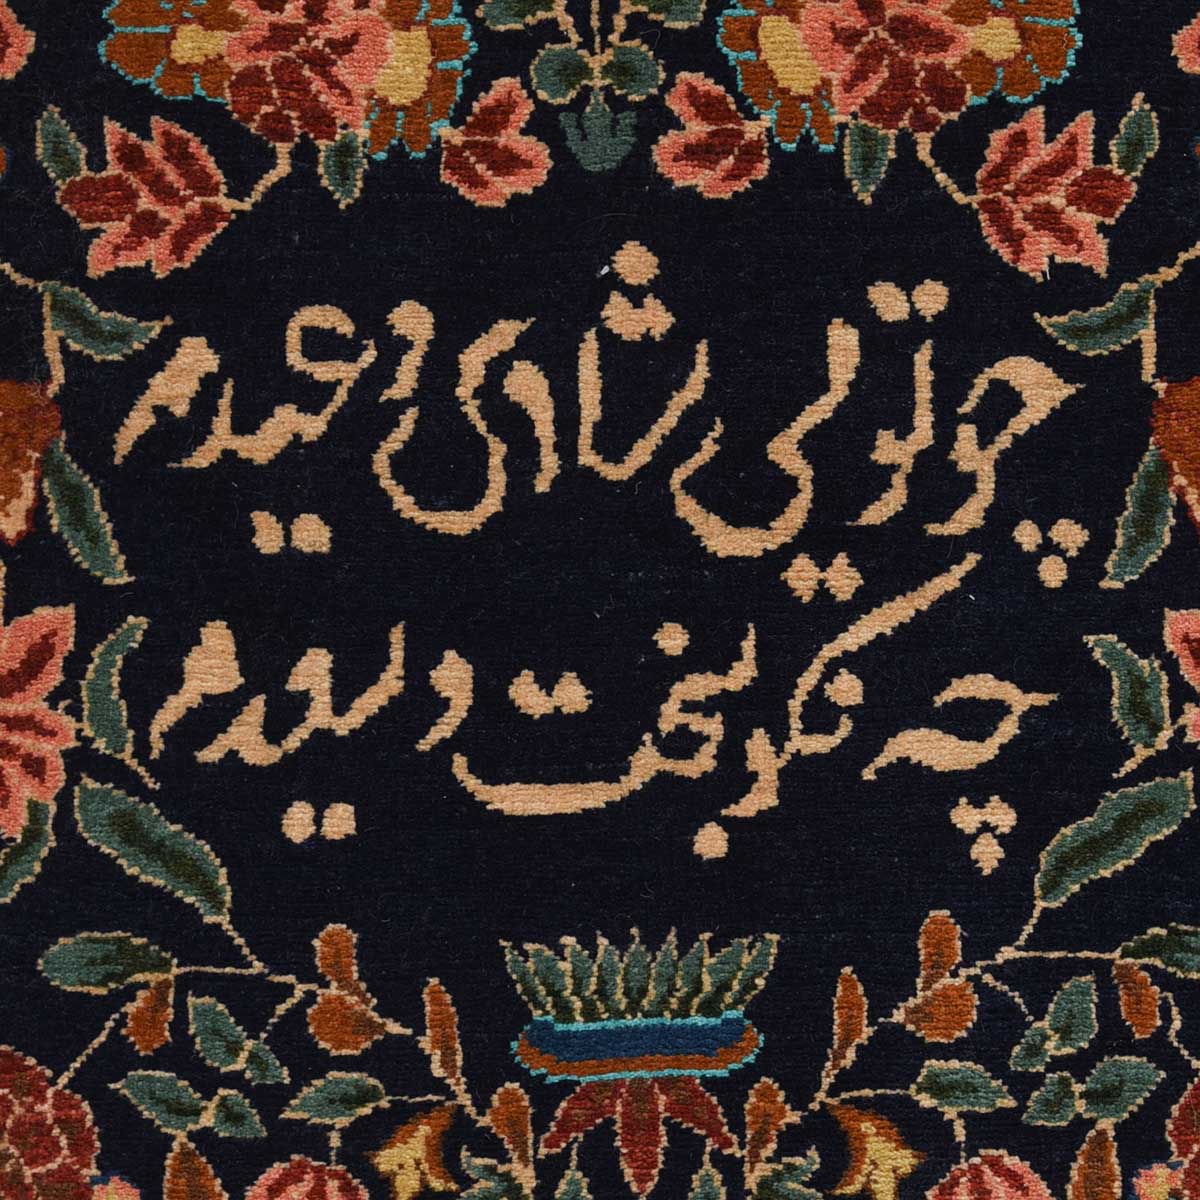 چو تویی شادی و عیدم
چه نکوبخت و سعیدم